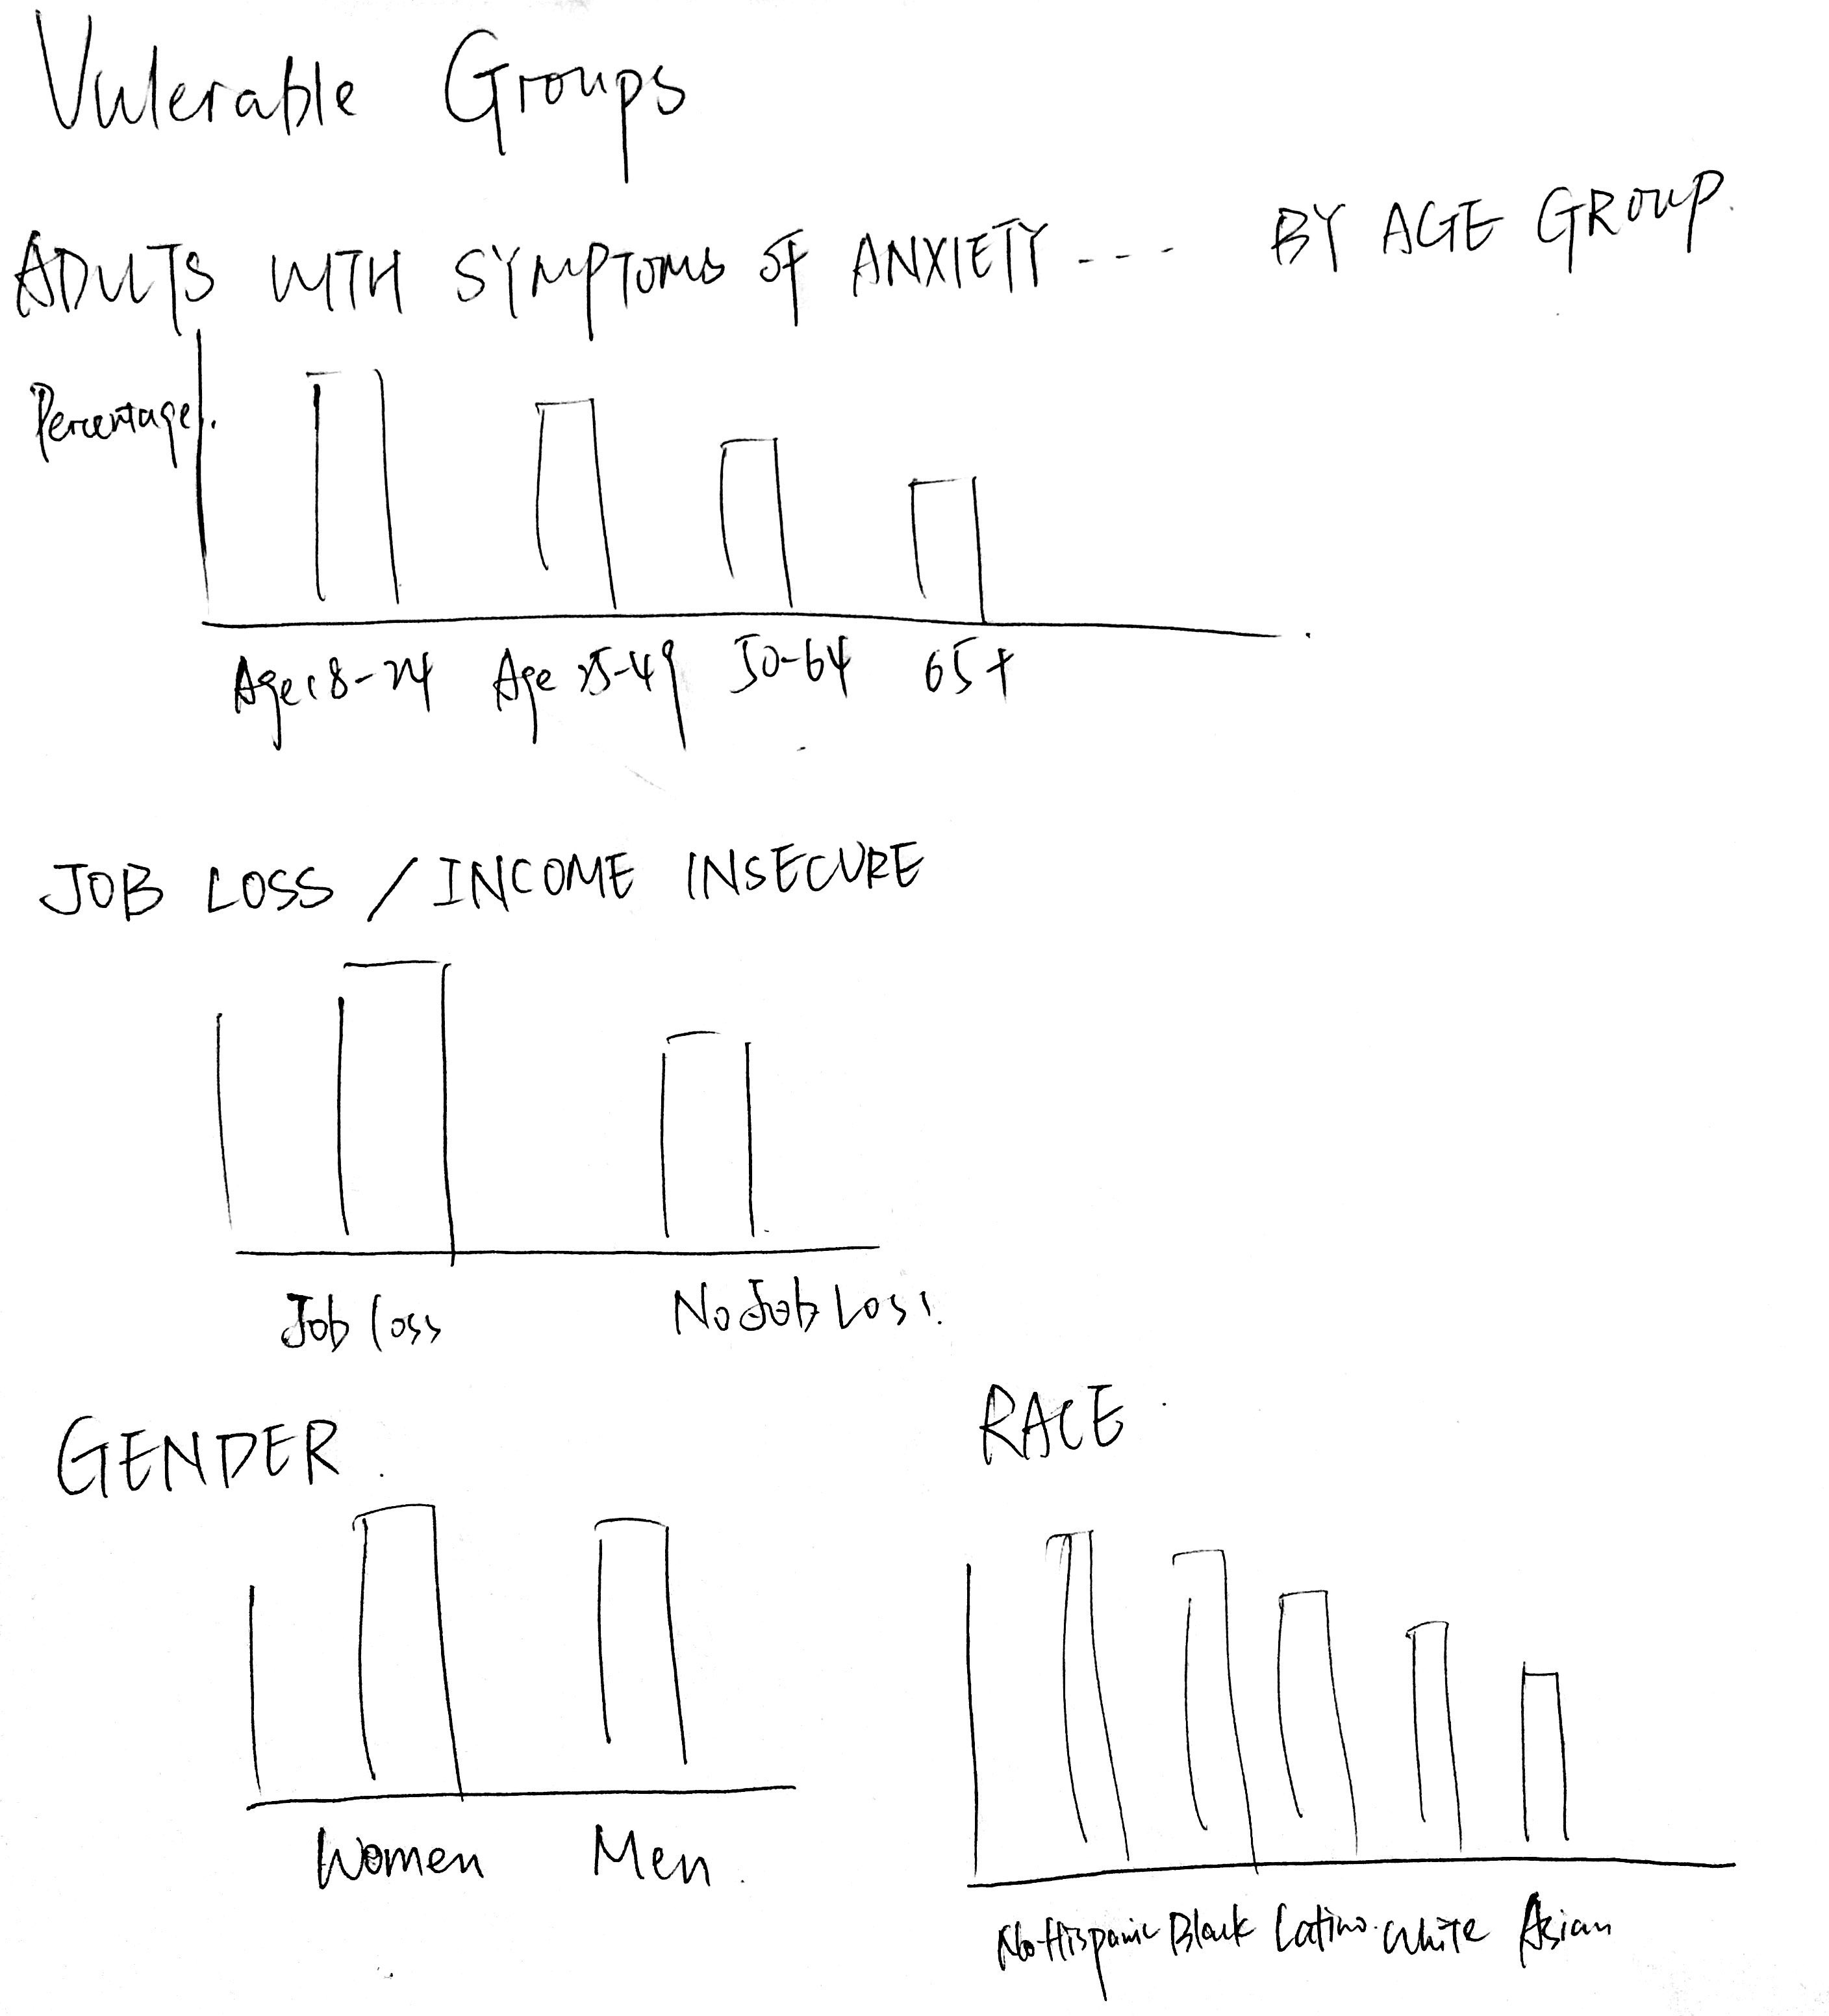 Vulerable Groups
ADULTS WITH SYMPTOMS OF ANXIETY --- BY AGE GROUP.
Percentage.
Age 18-24 Age 25-49 50-64 65+
JOB LOSS / INCOME INSECURE
Job loss No Job Loss.
GENDER.
Women Men.
RACE.
No-Hispanic Black Latino. White Asian